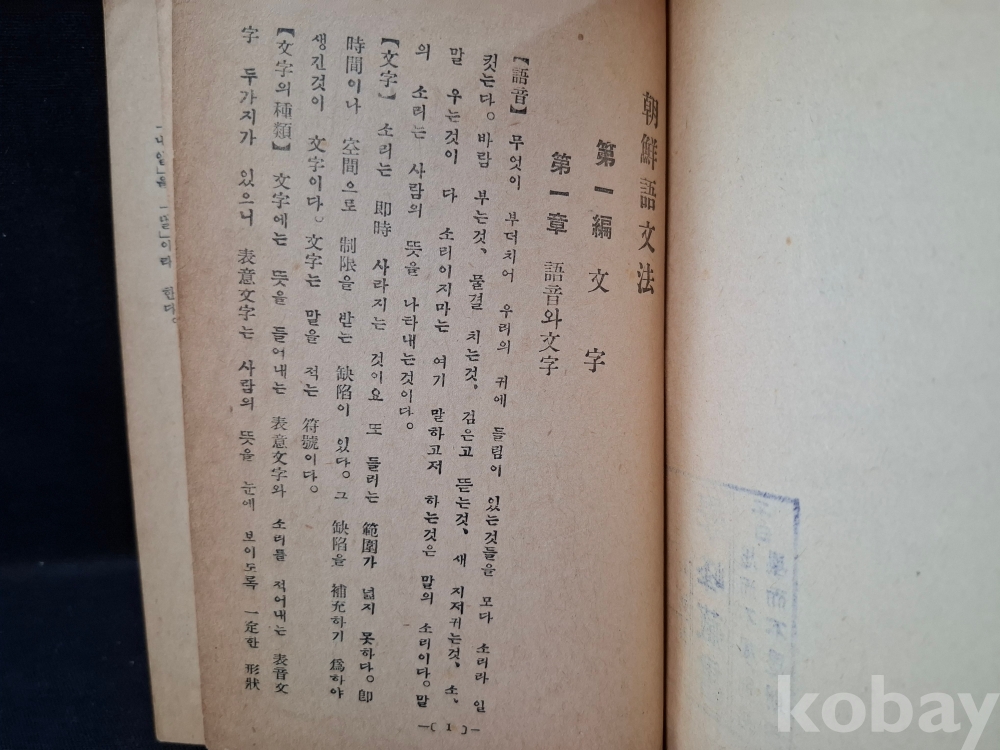 朝鮮語文法
第一編 文字
第一章 語音와文字
【語音】 무엇이 부더치어 우리의 귀에 들림이 있는것들을 모다 소리라 일
컷는다。바람 부는것、물결 치는것、검은고 뜯는것、새 지저귀는것、소、
말 우는것이 다 소리이지마는 여기 말하고저 하는것은 말의 소리이다。말
의 소리는 사람의 뜻을 나타내는것이다。
【文字】 소리는 即時 사라지는 것이요 또 들리는 範圍가 넓지 못하다。即
時間이나 空間으로 制限을 받는 缺陷이 있다。그 缺陷을 補充하기 爲하야
생긴것이 文字이다。文字는 말을 적는 符號이다。
【文字의種類】 文字에는 뜻을 들어내는 表意文字와 소리를 적어내는 表音文
字 두가지가 있으니 表意文字는 사람의 뜻을 눈에 보이도록 一定한 形狀
—( 1 )—
이라 한다。
kobay